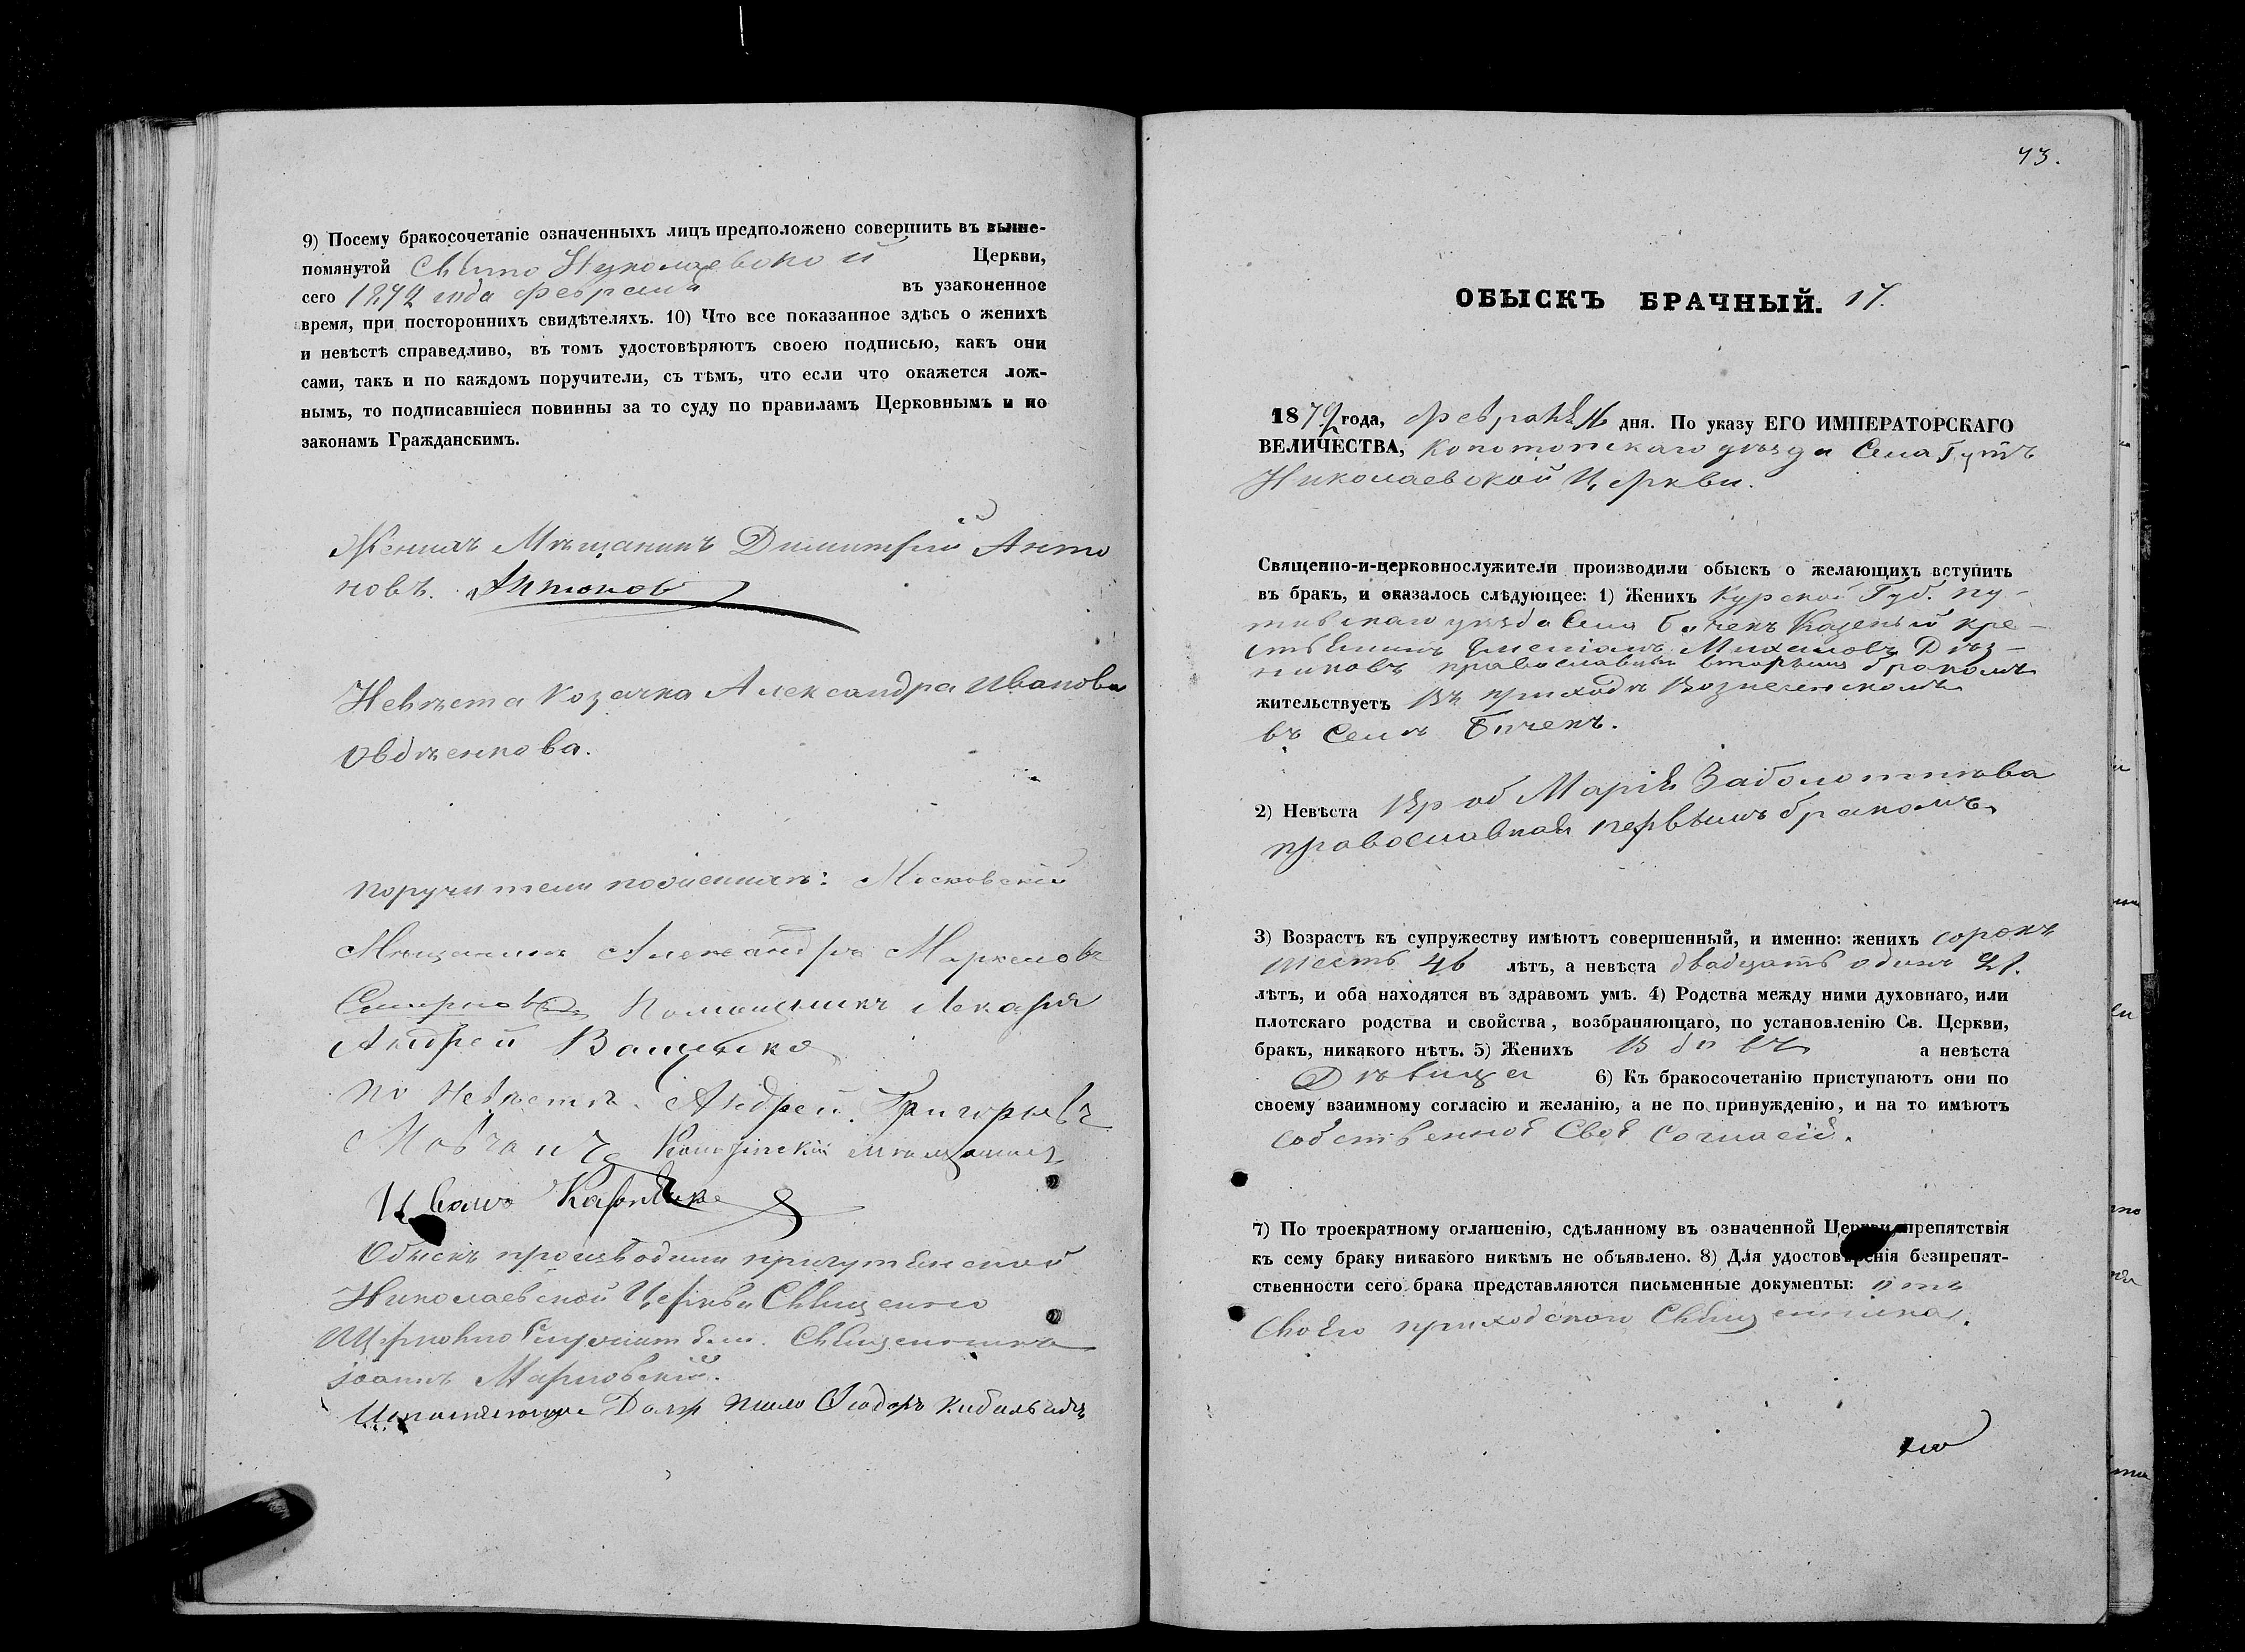 9) Посему бракосочетаніе означенныхъ лицъ предположено совершить въ выше-
помянутой Свято Николаевской Церкви,
сего 1879 года февраля въ узаконенное
время, при постороннихъ свидѣтеляхъ. 10) Что все показанное здѣсь о женихѣ
и невѣстѣ справедливо, въ томъ удостовѣряютъ своею подписью, какъ они
сами, такъ и по каждомъ поручители, съ тѣмъ, что если что окажется лож-
нымъ, то подписавшіеся повинны за то суду по правиламъ Церковнымъ и по
законамъ Гражданскимъ.
Женихъ Мѣщанинъ Димитрій Анто
новъ. Антонов
Невѣста козачка Александра Иванова
Овдѣенкова.
Поручители по женихѣ: Московскій
Мѣщанинъ Александръ Маркеловъ
Смирновъ Помощникъ Лекаря
Андрей
По невѣстѣ. Андрей Григорьевъ
Мовчанъ мѣщанинъ
Иванъ
Обыскъ производили
Николаевской Церкви Священно
Церковно Служители. Священникъ
Іоаннъ Марковскій.
Исполняющій Долж Псало Ѳеодоръ
43.
ОБЫСКЪ БРАЧНЫЙ. 17.
1879 года, Февраля 16 дня. По указу ЕГО ИМПЕРАТОРСКАГО
ВЕЛИЧЕСТВА, Конотопскаго уѣзда Села Гутъ
Николаевской Церкви.
Священно-и-церковнослужители производили обыскъ о желающихъ вступить
въ бракъ, и оказалось слѣдующее: 1) Женихъ Курской Губ. Пу-
тивлскаго уѣзда Села Бочекъ Казеный кре-
стьянинъ Емеліанъ Михаиловъ
православный вторымъ бракомъ
жительствуетъ Въ приходѣ Вознесенскомъ
въ Селѣ Бочекъ.
2) Невѣста Марія Заболотнова
православная первымъ бракомъ
3) Возрастъ къ супружеству имѣютъ совершенный, и именно: женихъ сорокъ
шесть 46 лѣтъ, а невѣста двадцать одинъ 21.
лѣтъ, и оба находятся въ здравомъ умѣ. 4) Родства между ними духовнаго, или
плотскаго родства и свойства, возбраняющаго, по установленію Св. Церкви,
бракъ, никакого нѣтъ. 5) Женихъ Вдовъ а невѣста
Дѣвица 6) Къ бракосочетанію приступаютъ они по
своему взаимному согласію и желанію, а не по принужденію, и на то имѣютъ
собственное Свое Согласіе.
7) По троекратному оглашенію, сдѣланному въ означенной Церкви препятствія
къ сему браку никакого никѣмъ не объявлено. 8) Для удостовѣренія безпрепят-
ственности сего брака представляются письменные документы: отъ
Своего приходского Священника.